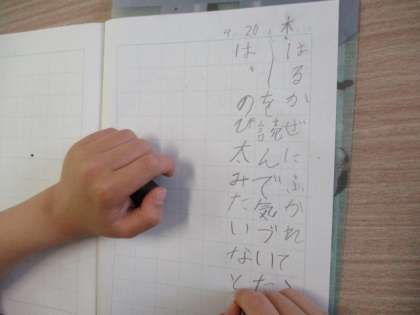 木
はるかぜにふかれて
〜を読んで気づいた
は、のび太みたいなと